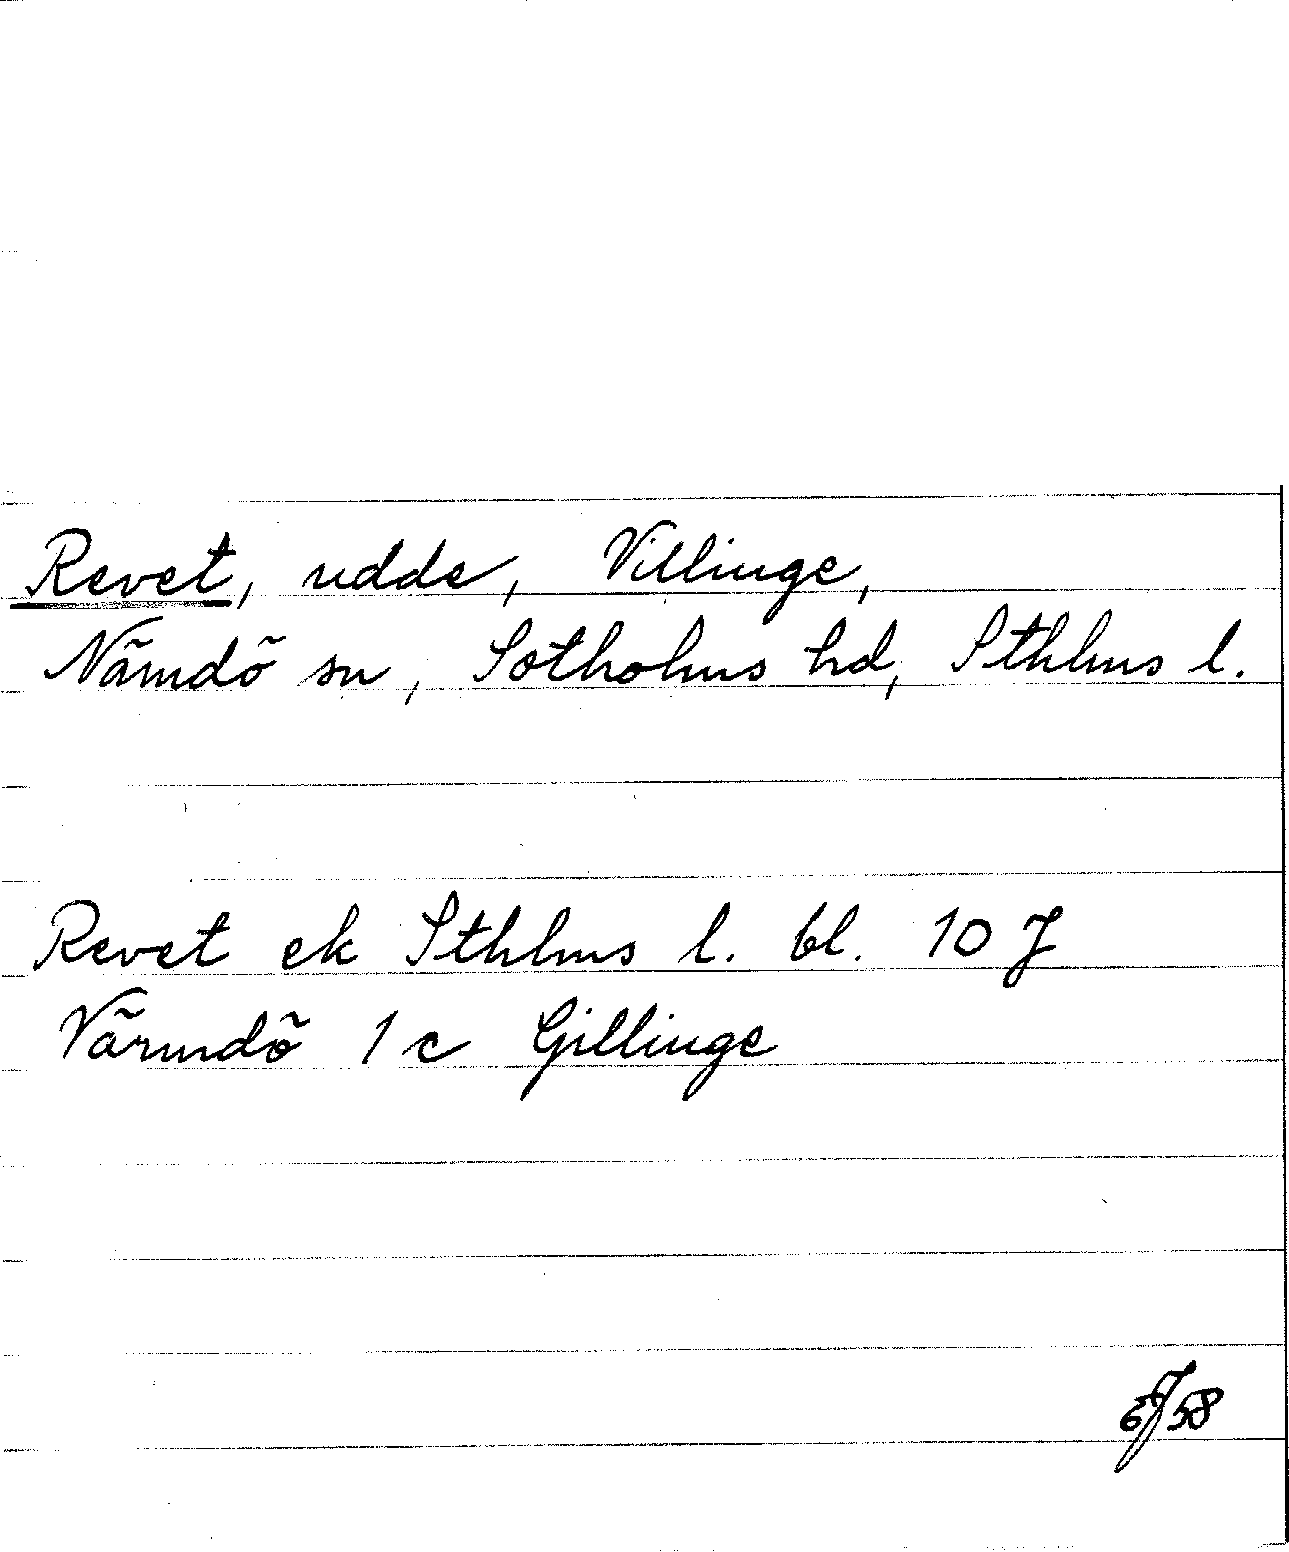 Revet, udde, Villinge,
Nämdö sn, Sotholms hd, Sthlms l.
Revet ek Sthlms l. bl. 10 J
Värmdö 1 c Gillinge
58